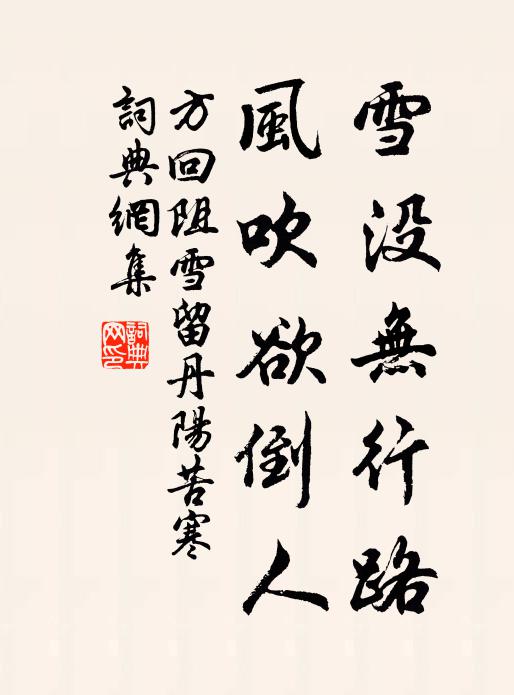 雪没無行路
風吹欲倒人
方回阻雪留丹陽苦寒
詞典網集
詞典網印